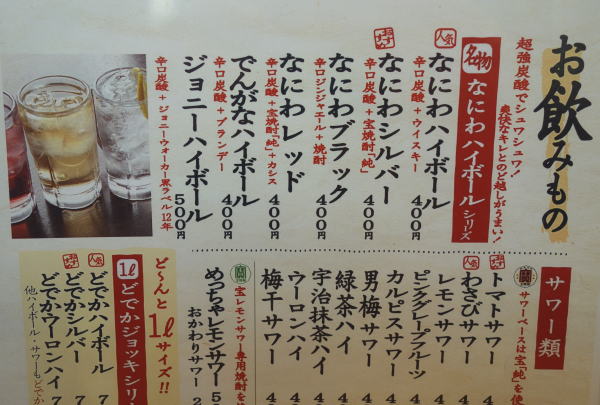 お飲みもの
超強炭酸でシュワシュワ!
爽快なキレとのど越しがうまい!
名物 なにわハイボール シリーズ
人気
なにわハイボール 400円
辛口炭酸+ウイスキー
おすすめ
なにわシルバー 400円
辛口炭酸+宝焼酎「純」
なにわブラック 400円
辛口ジンジャエール+焼酎
なにわレッド 400円
辛口炭酸+宝焼酎「純」+カシス
でんがなハイボール 400円
辛口炭酸+ブランデー
ジョニーハイボール 500円
辛口炭酸+ジョニーウォーカー黒ラベル12年
サワー類
サワーベースは宝「純」を使
トマトサワー 4
人気
わさびサワー 4
レモンサワー 4
ピンクグレープフルーツ 4
カルピスサワー 4
男梅サワー 4
緑茶ハイ 4
宇治抹茶ハイ 4
ウーロンハイ 4
梅干サワー 4
宝レモンサワー専用焼酎を使
めっちゃレモンサワー 5
おかわりサワー 2
ど〜んと1ℓサイズ!!
1ℓ どでかジョッキシリ
人気
どでかハイボール 7
おすすめ
どでかシルバー 7
どでかウーロンハイ 7
他ハイボール・サワーもどでか